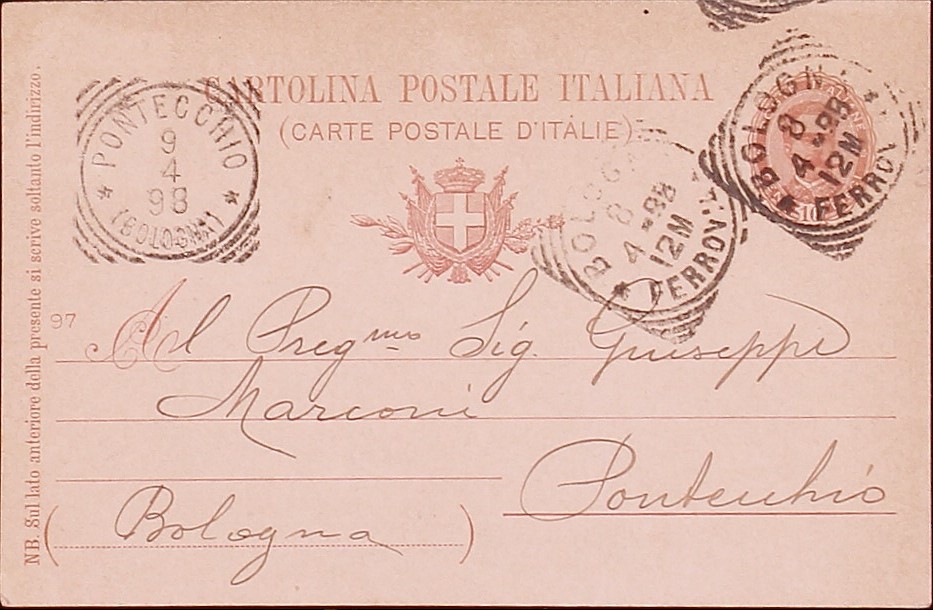 CARTOLINA POSTALE ITALIANA
(CARTE POSTALE D'ITALIE)
PONTECCHIO
9
4
98
(BOLOGNA)
BOLOGNA
8
4 - 98
12M
FERROVIA
BOLOGNA
8
4 - 98
12M
FERROV
10
97
Al Pregmo Sig. Giuseppe
Marconi
Pontecchio
(Bologna)
NB. Sul lato anteriore della presente si scrive soltanto l'indirizzo.